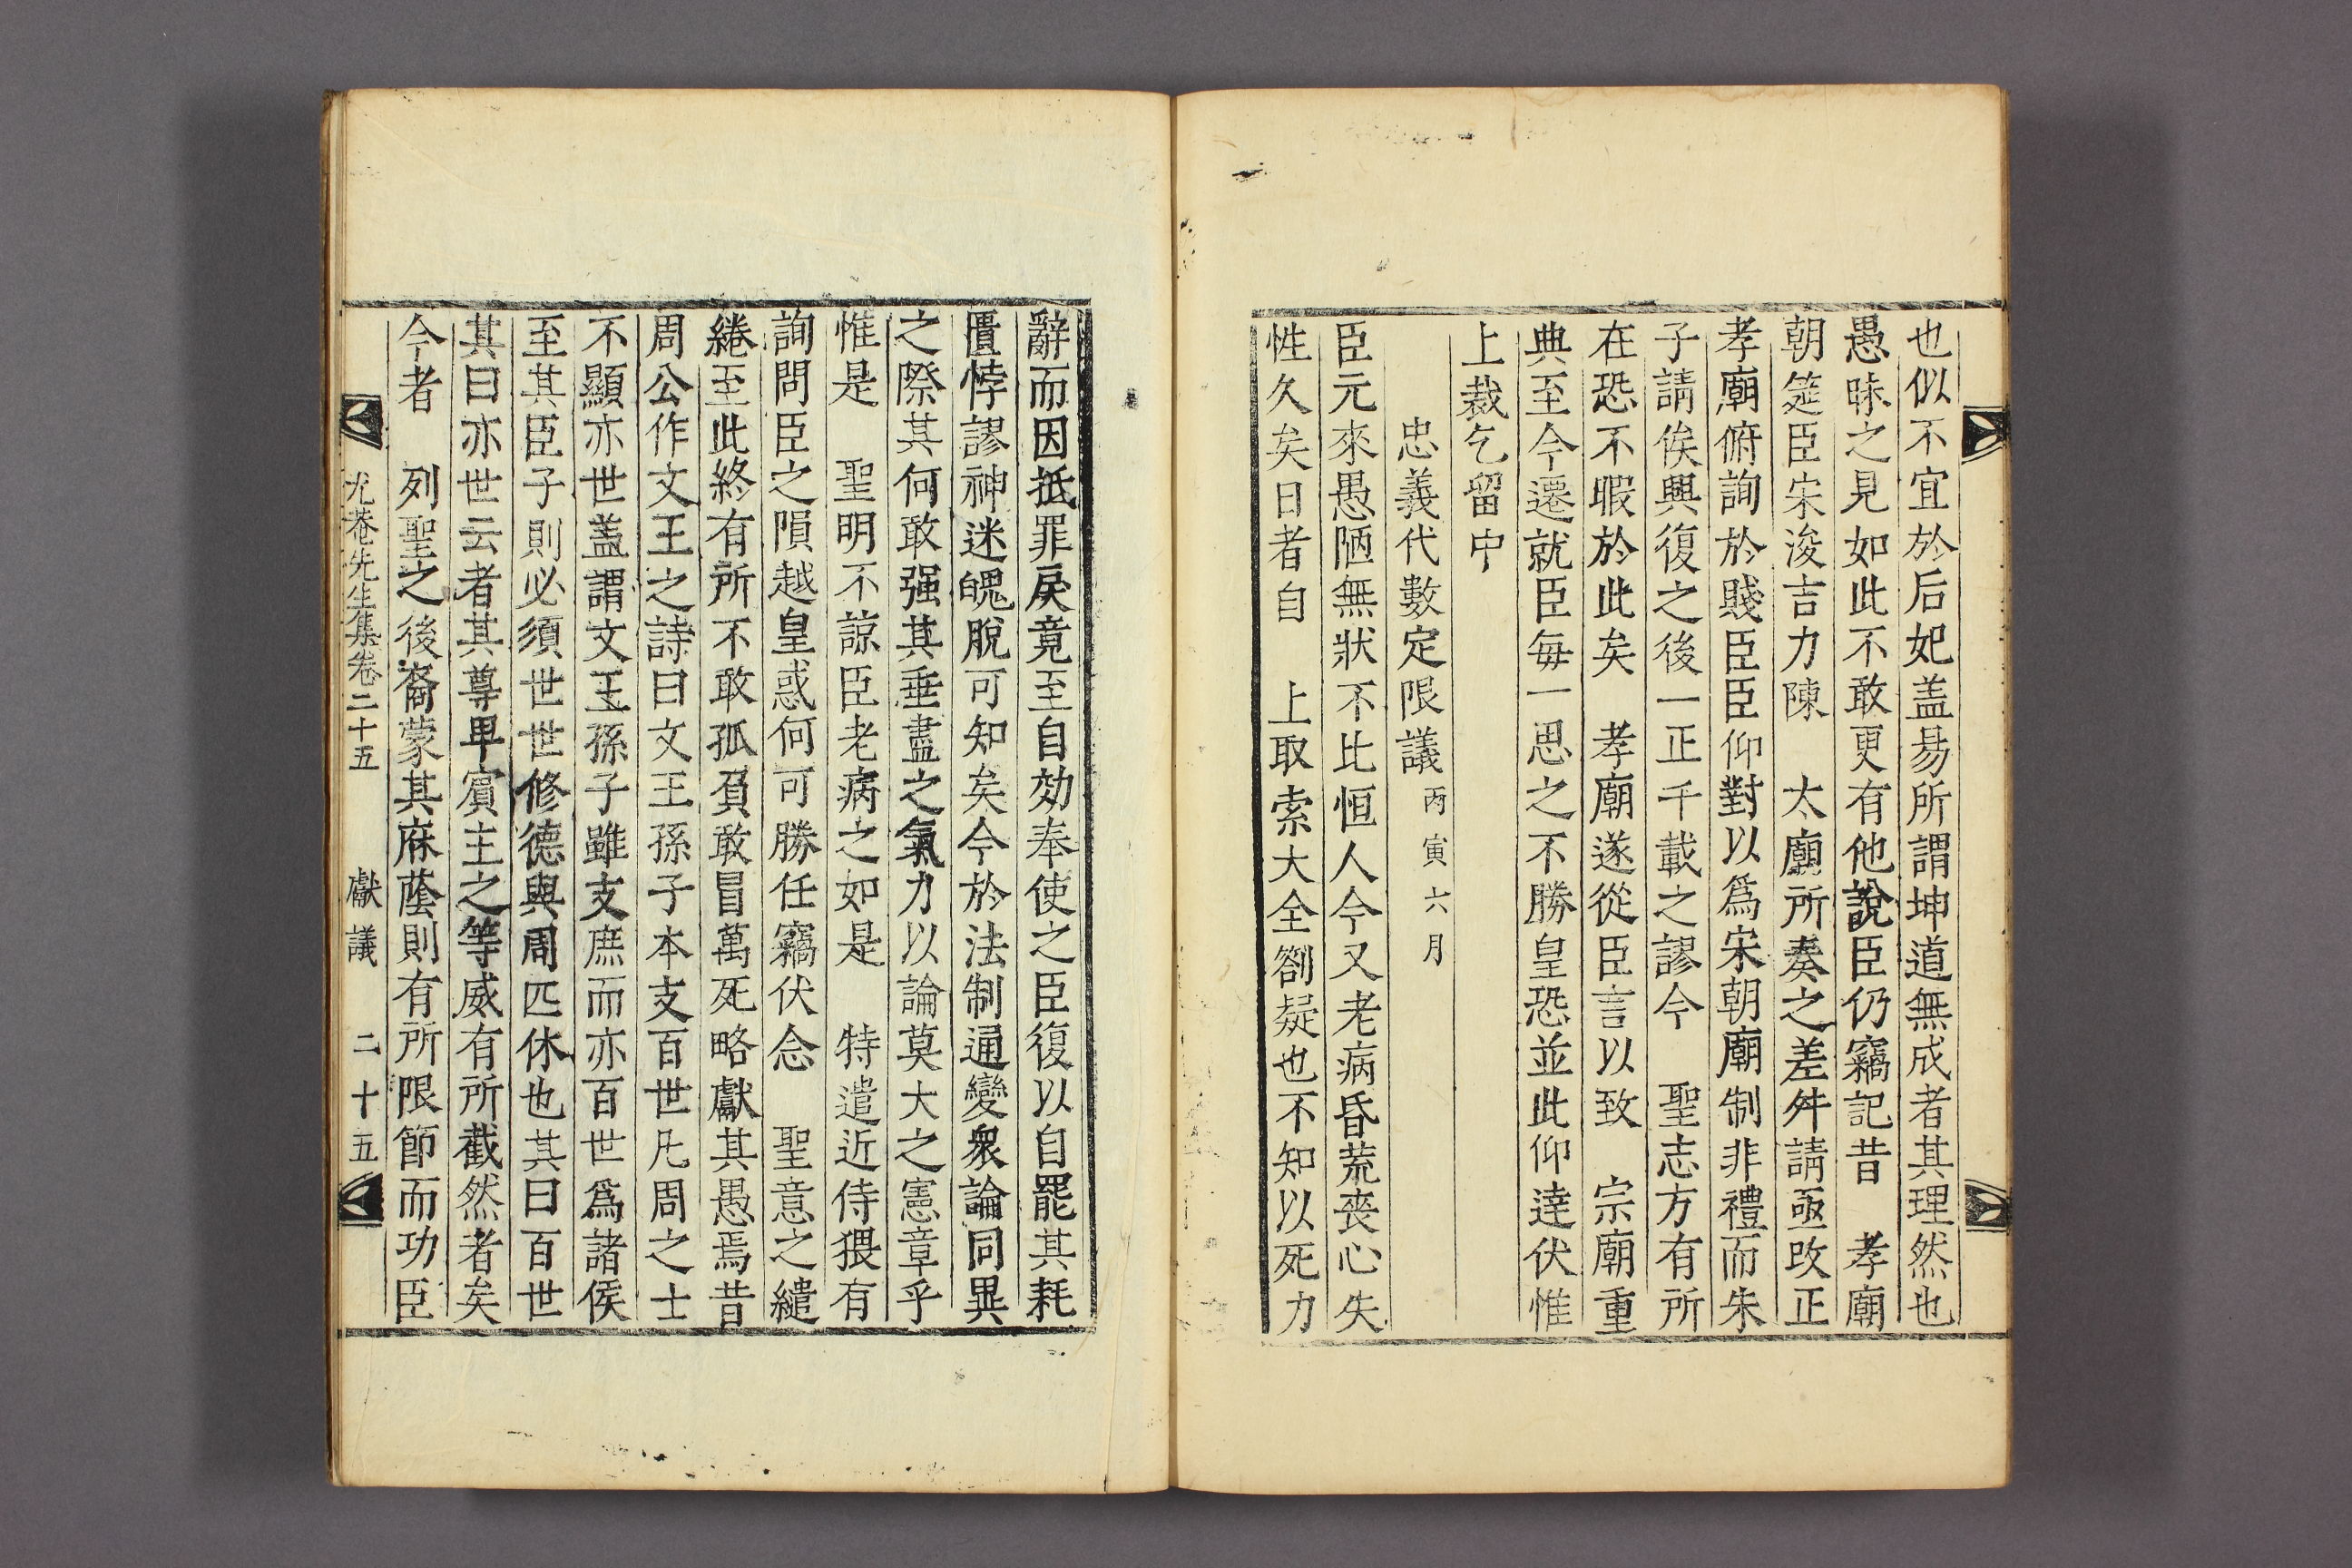 也似不宜於后妃盖易所謂坤道無成者其理然也
愚昧之見如此不敢更有他說臣仍竊記昔 孝廟
朝筵臣宋浚吉力陳 太廟所奏之差舛請亟改正
孝廟俯詢於賤臣臣仰對以爲宋朝廟制非禮而朱
子請俟興復之後一正千載之謬今 聖志方有所
在恐不暇於此矣 孝廟遂從臣言以致 宗廟重
典至今遷就臣每一思之不勝皇恐並此仰達伏惟
上裁乞留中
忠義代數定限議 丙寅六月
臣元來愚陋無狀不比恒人今又老病昏荒喪心失
性久矣日者自 上取索大全劄疑也不知以死力
辭而因抵罪戾竟至自効奉使之臣復以自罷其耗
匱悖謬神迷魄脫可知矣今於法制通變衆論同異
之際其何敢强其垂盡之氣力以論莫大之憲章乎
惟是 聖明不諒臣老病之如是 特遣近侍猥有
詢問臣之隕越皇惑何可勝任竊伏念 聖意之繾
綣至此終有所不敢孤負敢冒萬死略獻其愚焉昔
周公作文王之詩曰文王孫子本支百世凡周之士
不顯亦世盖謂文王孫子雖支庶而亦百世爲諸侯
至其臣子則必須世世修德與周匹休也其曰百世
其曰亦世云者其尊卑賓主之等威有所截然者矣
今者 列聖之後裔蒙其庥蔭則有所限節而功臣
尤菴先生集卷二十五 獻議 二十五